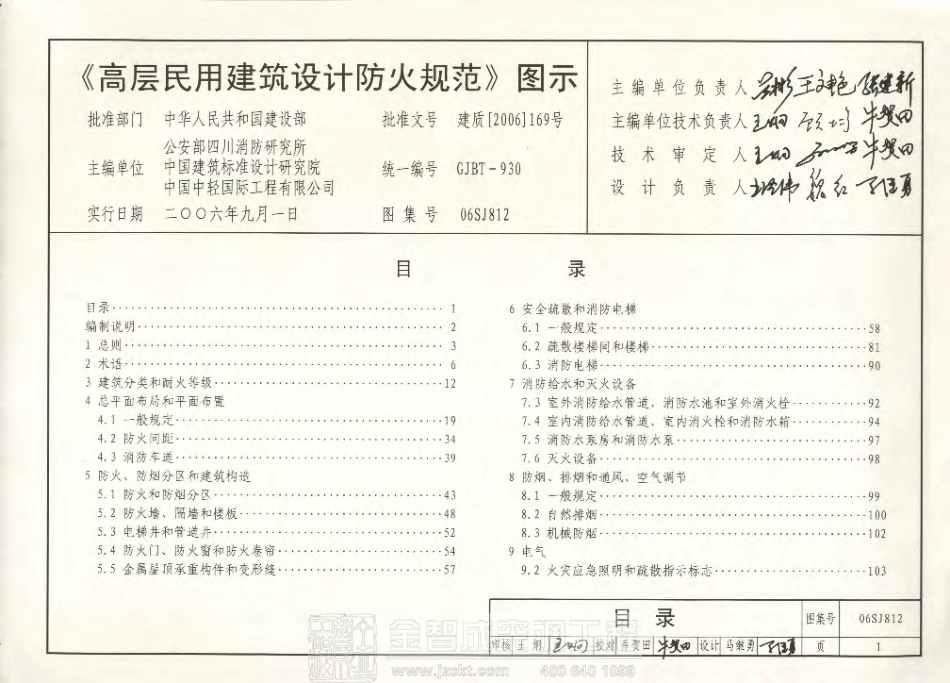 《高层民用建筑设计防火规范》图示
批准部门 中华人民共和国建设部 批准文号 建质[2006]169号
主编单位 公安部四川消防研究所
中国建筑标准设计研究院
中国中轻国际工程有限公司
统一编号 GJBT-930
实行日期 二〇〇六年九月一日 图集号 06SJ812
主编单位负责人
主编单位技术负责人
技术审定人
设计负责人
目 录
目录 1
编制说明 2
1 总则 3
2 术语 6
3 建筑分类和耐火等级 12
4 总平面布局和平面布置
4.1 一般规定 19
4.2 防火间距 34
4.3 消防车道 39
5 防火、防烟分区和建筑构造
5.1 防火和防烟分区 43
5.2 防火墙、隔墙和楼板 48
5.3 电梯井和管道井 52
5.4 防火门、防火窗和防火卷帘 54
5.5 金属屋顶承重构件和变形缝 57
6 安全疏散和消防电梯
6.1 一般规定 58
6.2 疏散楼梯间和楼梯 81
6.3 消防电梯 90
7 消防给水和灭火设备
7.3 室外消防给水管道、消防水池和室外消火栓 92
7.4 室内消防给水管道、室内消火栓和消防水箱 94
7.5 消防水泵房和消防水泵 97
7.6 灭火设备 98
8 防烟、排烟和通风、空气调节
8.1 一般规定 99
8.2 自然排烟 100
8.3 机械防烟 102
9 电气
9.2 火灾应急照明和疏散指示标志 103
目 录 图集号 06SJ812
审核 王炯 校对 设计 马继勇 页 1
www.jzckt.com 400 640 1099